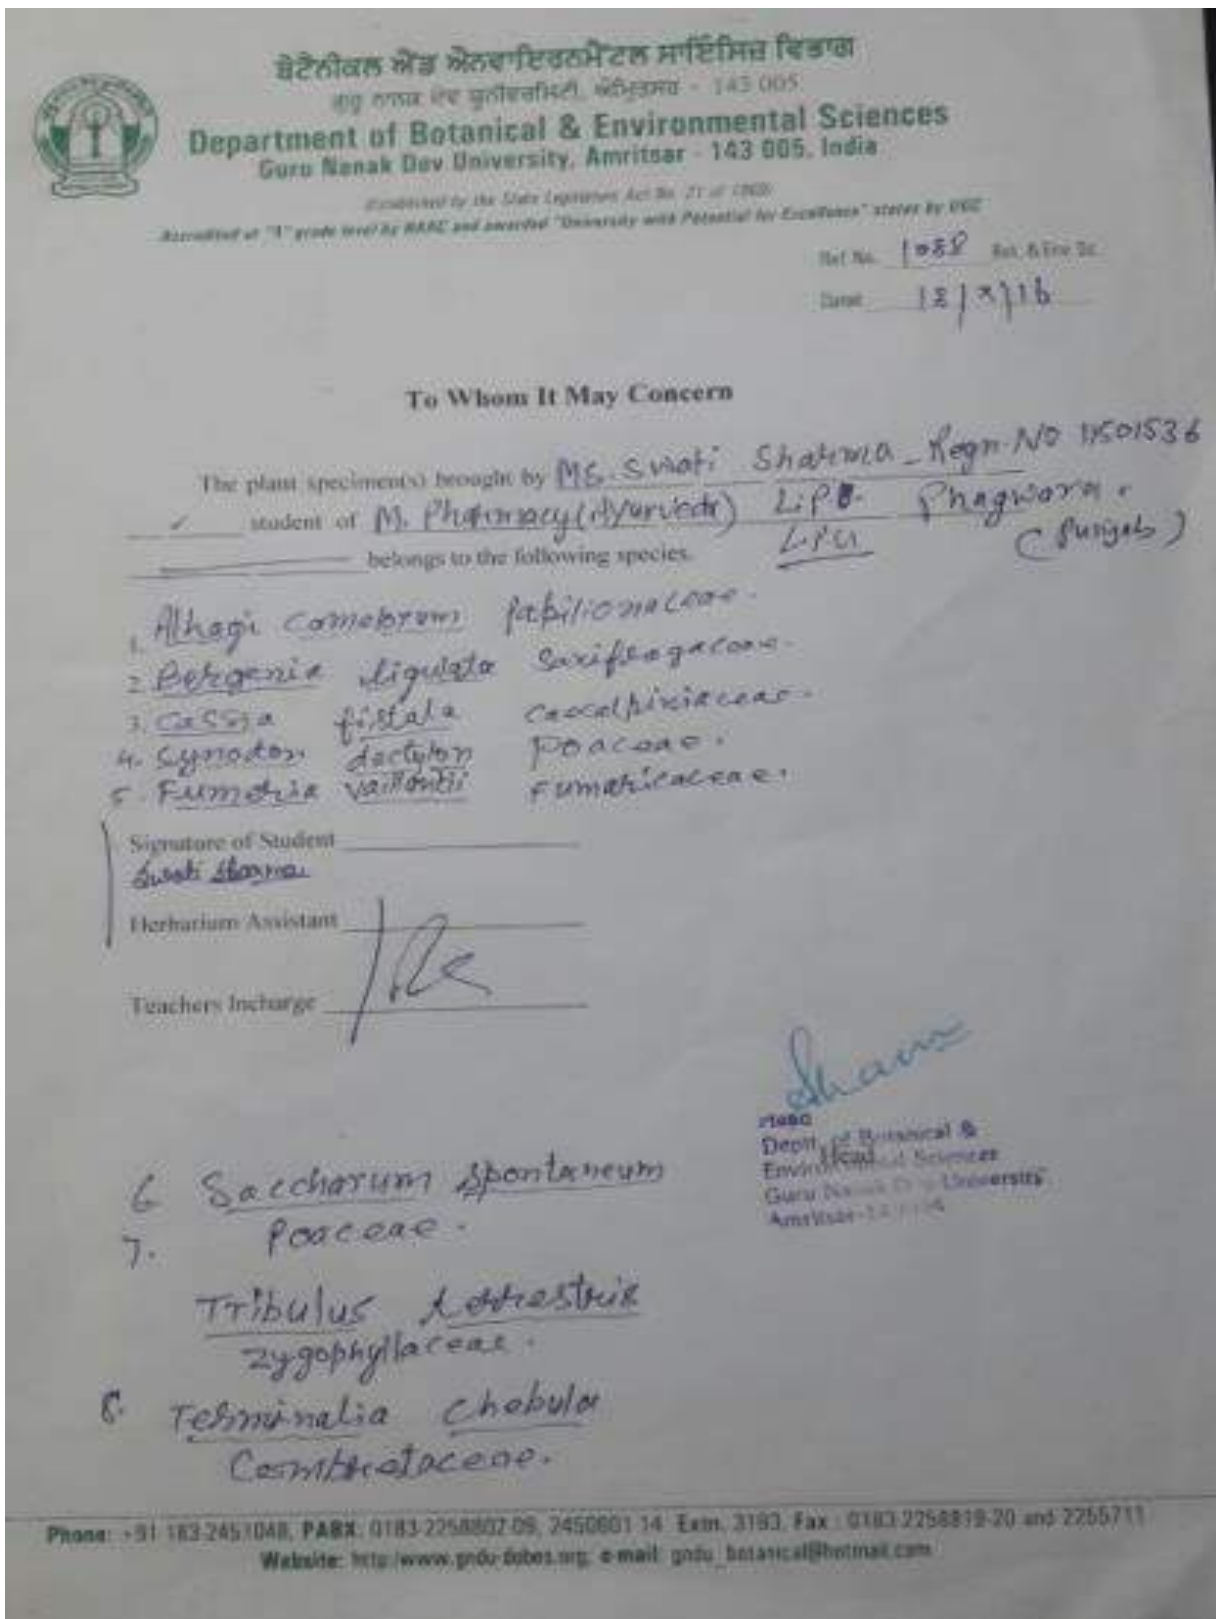 ਬੋਟੈਨੀਕਲ ਐਂਡ ਐਨਵਾਇਰਨਮੈਂਟਲ ਸਾਇੰਸਿਜ਼ ਵਿਭਾਗ
ਗੁਰੂ ਨਾਨਕ ਦੇਵ ਯੂਨੀਵਰਸਿਟੀ, ਅੰਮ੍ਰਿਤਸਰ - 143 005
Department of Botanical & Environmental Sciences
Guru Nanak Dev University, Amritsar - 143 005, India
(Established by the State Legislature Act No. 21 of 1969)
Accredited at "A" grade level by NAAC and awarded "University with Potential for Excellence" status by UGC
Ref No. Bot. & Env. Sc.
Dated
To Whom It May Concern
The plant speciment(s) brought by MS. Swati Sharma - Regn. NO 11501536
✓ student of M. Pharmacy (Ayurveda) Phagwara.
belongs to the following species. LPU (Punjab)
1. Alhagi camelorum Papilionaceae.
2. Bergenia ligulata Saxifragaceae.
3. Cassia fistala Caesalpiniaceae.
4. Cynodon dactylon Poaceae.
5. Fumaria vaillantii Fumaricaceae.
Signature of Student
Swati Sharma
Herbarium Assistant
Teachers Incharge
Head
Deptt. of Botanical &
Environmental Sciences
Guru Nanak Dev University
Amritsar-
6 Saccharum spontaneum
Poaceae.
7.
Tribulus terrestris
Zygophyllaceae.
8. Terminalia Chebula
Combretaceae.
Phone: +91 183-2451048, PABX: 0183-2258802-09, 2450601-14 Extn. 3193, Fax : 0183-2258819-20 and 2255711
Website: http:/www.gndu-dobes.org; e-mail: gndu_botanical@hotmail.com